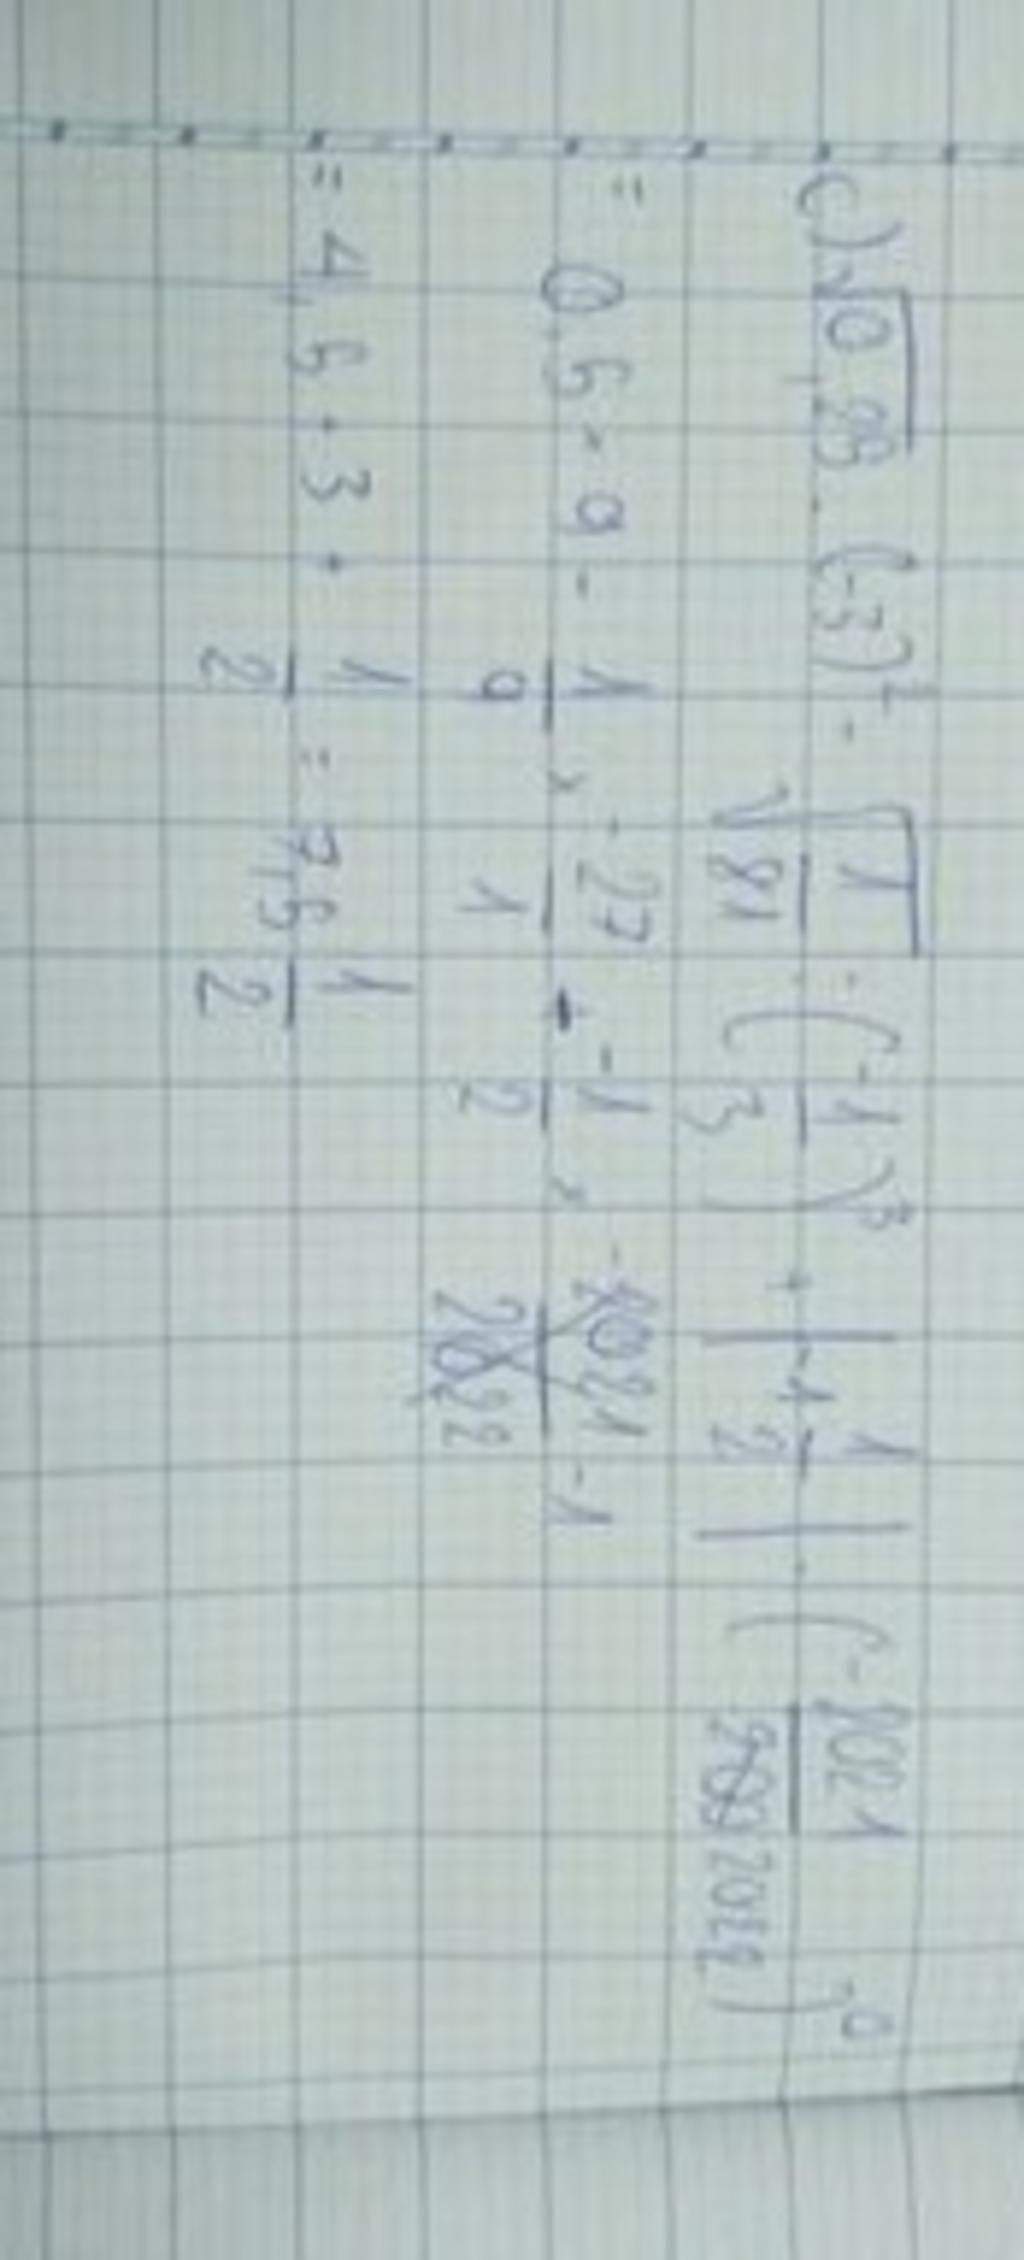 c) √0,25 . (-3)² - √(1/81) : (-1/3)³ + |-1 1/2| . (-2021/2022)⁰
= 0,5 × 9 - 1/9 × -27/1 + -1/2 × -1
= 4,5 + 3 + 1/2 = 7,5 1/2